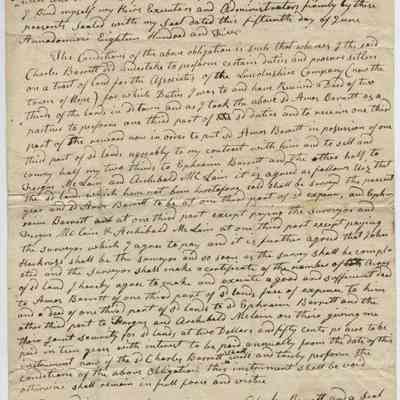 I Bind myself my Heirs Executors and Administrators firmly by these
presents, Sealed with my Seal dated this fifteenth day of June
Annadomini Eighteen Hundred and
The Conditions of the above obligation is such that whereas I the said
Charles Barrett did undertake to perform certain duties and procure settlers
on a tract of land for the Associates of the Lincolnshire Company (now the
town of Hope) for which Duties I was to and have Received a Deed of two
thirds of the lands in sd town and as I took the above sd Amos Barrett as a
partner to perform one third part of sd duties and to receive one third
part of the reward now in order to put sd Amos Barrett in possession of one
third part of sd lands agreably to my contract with him and to sell and
convey half my two thirds to Ephraim Barrett and the other half to
Fergus McLain and Archibald McLain it is agreed as follows Viz that
the sd land which have not been heretofore sold Shall be survey'd the present
year and sd Amos Barrett to be at one third part of sd expence, and Eph-
raim Barrett at one third part except paying the surveyor and
Fergus McLain & Archibald McLain at one third part except paying
the Surveyor which I agree to pay and it is further agreed that John
shall be the surveyor and so soon as the survey shall be compl-
eted and the Surveyor shall make a certificate of the number of Acres
of sd land I hereby agree to make and execute a good and sufficient deed
to Amos Barrett of one third part of sd lands free of expence to him
and a deed of one third part of sd lands to sd Ephraim Barrett and the
other third part to Fergus and Archibald McLain on there giving me
there Joint security for sd land at two Dollars and fifty cents pr acre to be
paid in ten years with intrest to be paid annually from the date of this
instrument now if the sd Charles Barrett shall well and truly perform the
conditions of the above Obligation this instrument shall be void
otherwise shall remain in full force and virtue
Charles Barrett and a Seal